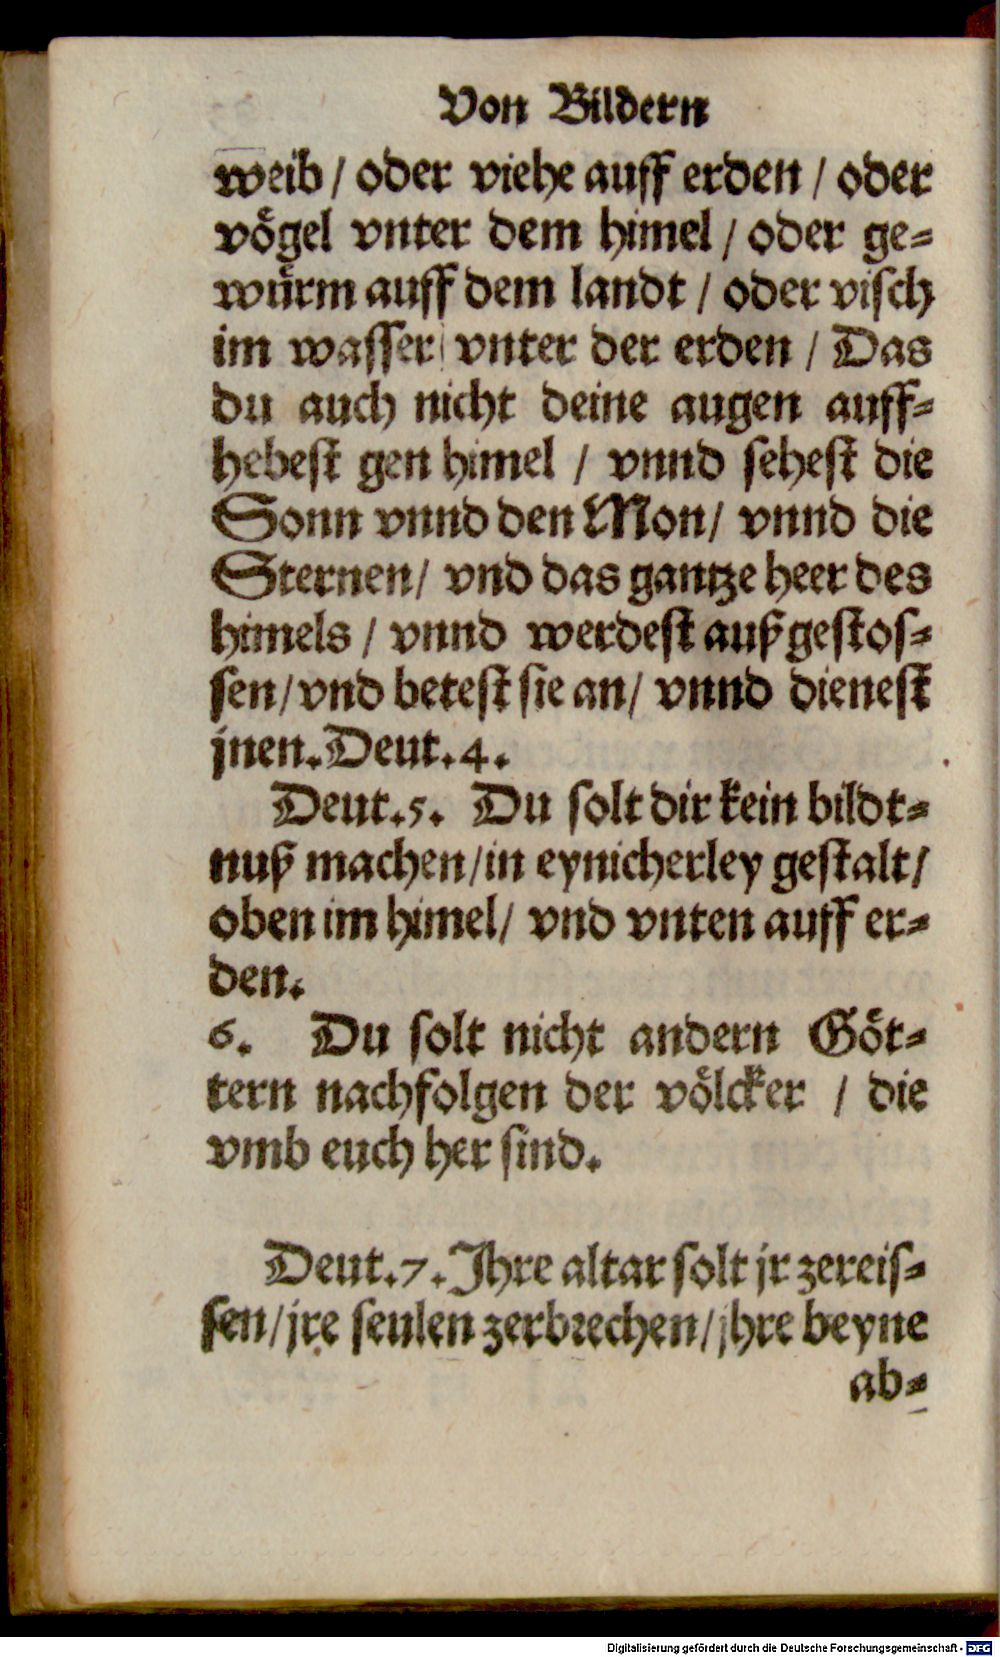 Von Bildern
weib / oder viehe auff erden / oder
vögel vnter dem himel / oder ge⸗
würm auff dem landt / oder visch
im wasser / vnter der erden / Das
du auch nicht deine augen auff⸗
hebest gen himel / vnnd sehest die
Sonn vnnd den Mon/ vnnd die
Sternen/ vnd das gantze heer des
himels / vnnd werdest auß gestos⸗
sen/ vnd betest sie an/ vnnd dienest
jnen. Deut. 4.
Deut. 5. Du solt dir kein bildt⸗
nuß machen/ in eynicherley gestalt/
oben im himel/ vnd vnten auff er⸗
den.
6. Du solt nicht andern Göt⸗
tern nachfolgen der völcker / die
vmb euch her sind.
Deut. 7. Ihre altar solt jr zereis⸗
sen/ jre seulen zerbrechen/ jhre beyne
ab⸗
Digitalisierung gefördert durch die Deutsche Forschungsgemeinschaft - DFG